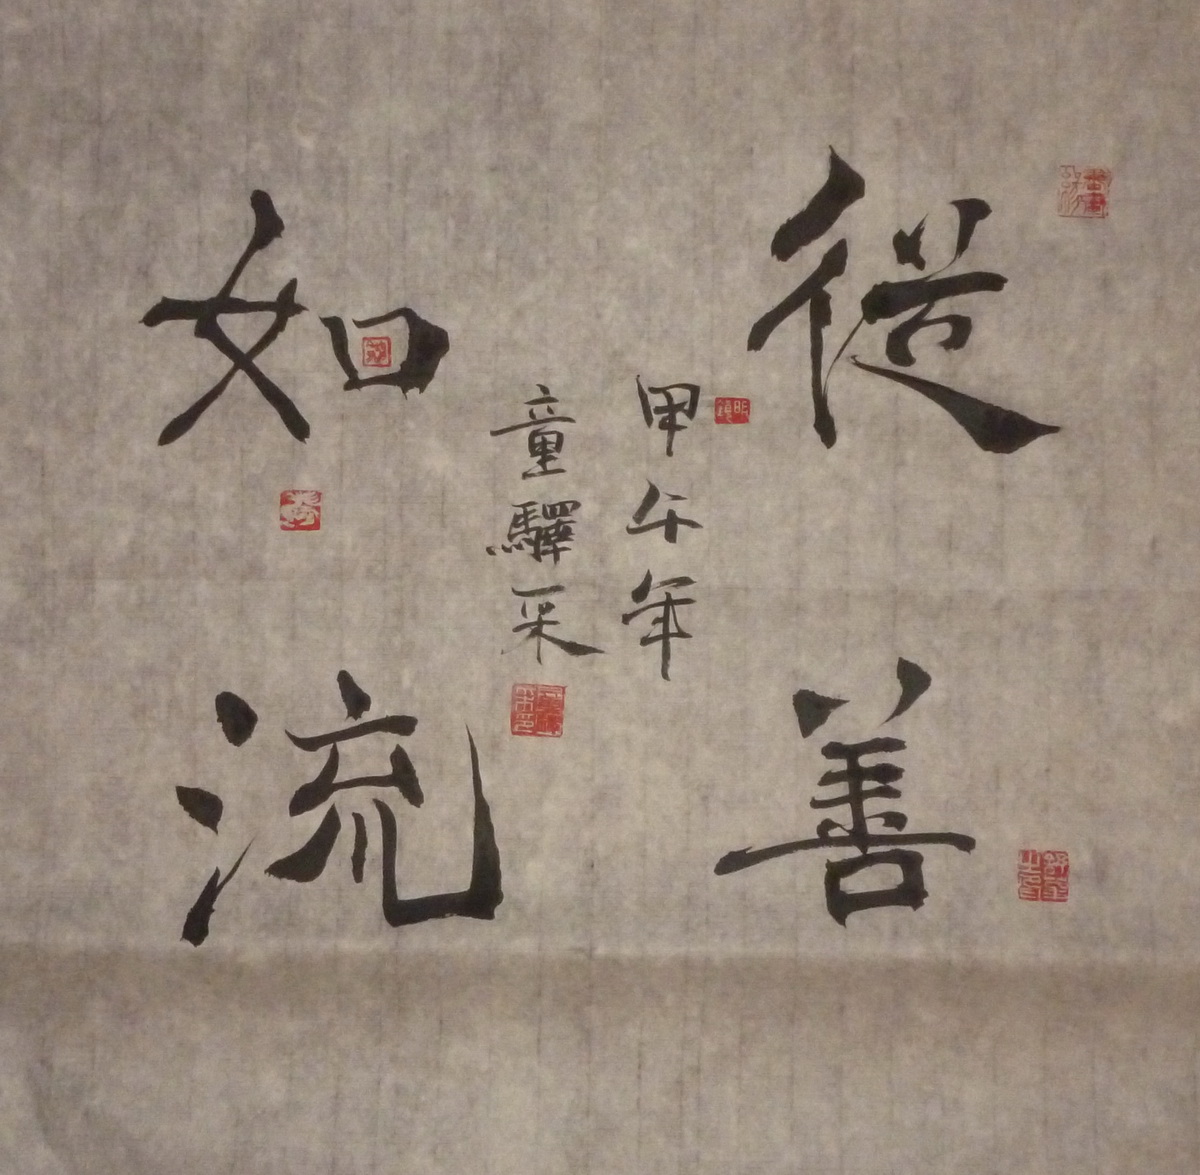 從善
如流
甲午年
童驛采
明鏡